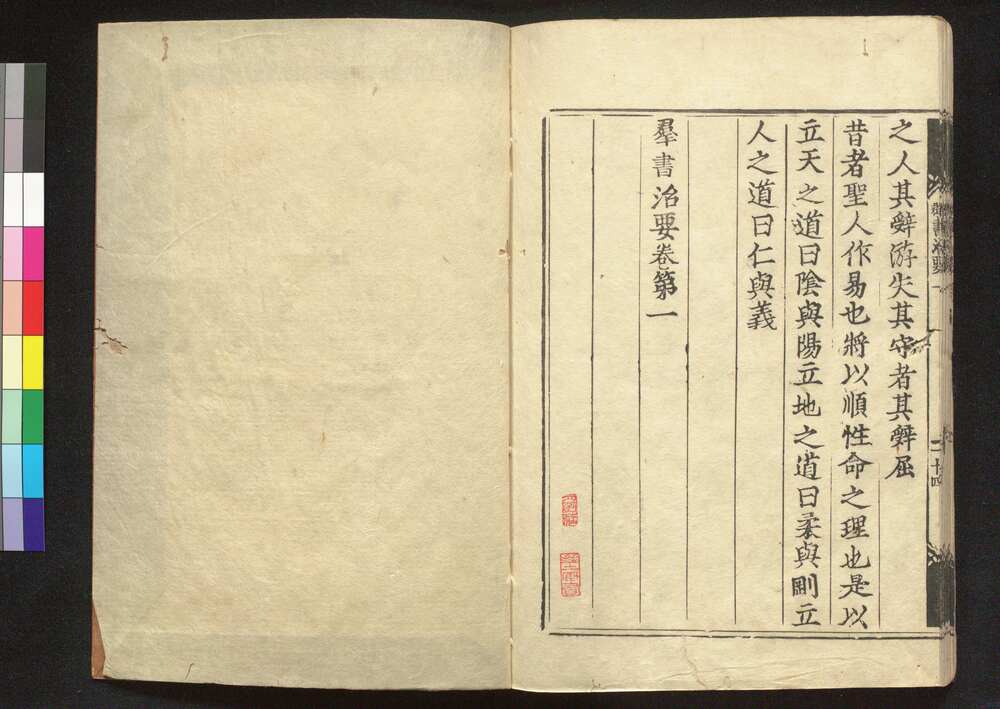 之人其辭游失其守者其辭屈
昔者聖人作易也將以順性命之理也是以
立天之道曰陰與陽立地之道曰柔與剛立
人之道曰仁與義
羣書治要卷第一
群書治要一
二十四